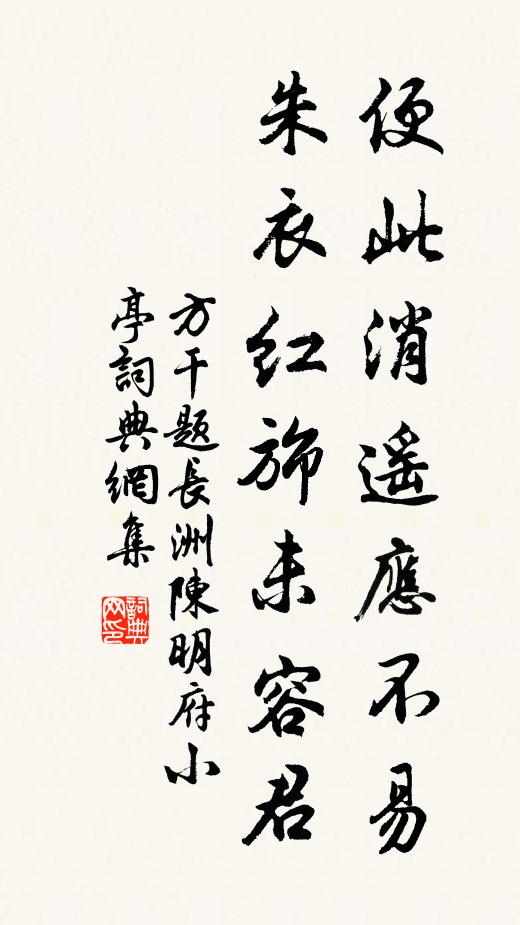 便此消遥應不易
朱衣紅旆未容君
方干題長洲陳明府小
亭詞典網集
詞典
网印